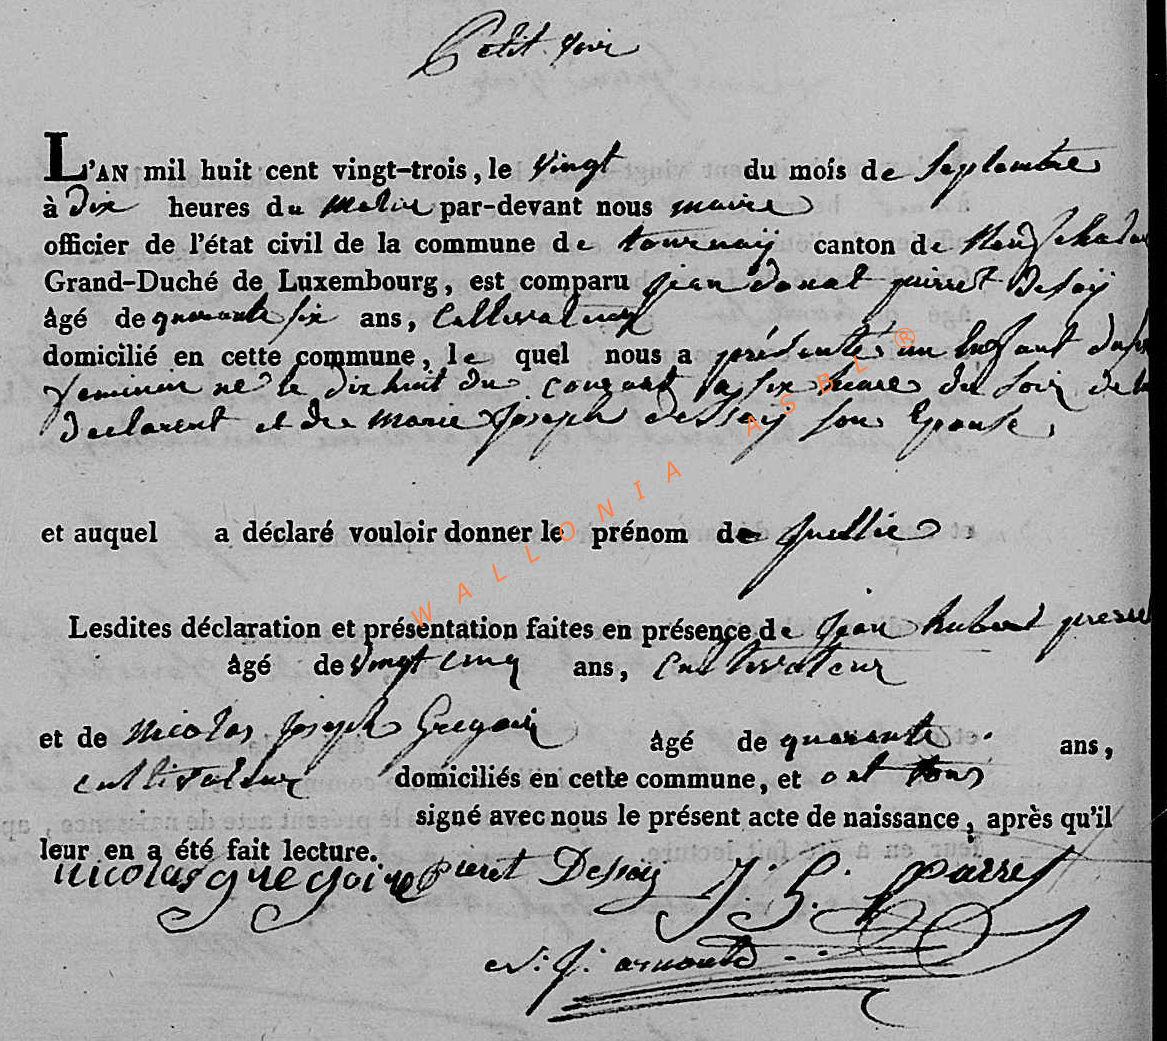 Petit voir
L'AN mil huit cent vingt-trois, le vingt du mois de Septembre
à dix heures du matin par-devant nous maire
officier de l'état civil de la commune de tournaÿ canton de
Grand-Duché de Luxembourg, est comparu jean donat pierret Desoÿ
âgé de quarante six ans, Cultivateur
domicilié en cette commune, le quel nous a présenté un Enfant du
feminin né le dixhuit du courant a six heure du soir de
declarent et de marie joseph dessoÿ son Epouse,
et auquel a déclaré vouloir donner le prénom de
Lesdites déclaration et présentation faites en présence de jean hubert
âgé de vingt cinq ans, cultivateur
et de nicolas joseph Gregoir âgé de quarante ans,
cultivateur domiciliés en cette commune, et ont tous
signé avec nous le présent acte de naissance, après qu'il
leur en a été fait lecture.
nicolas gregoire pieret Dessoÿ J. H. parret
N. J. arnould
WALLONIA ASBL ®